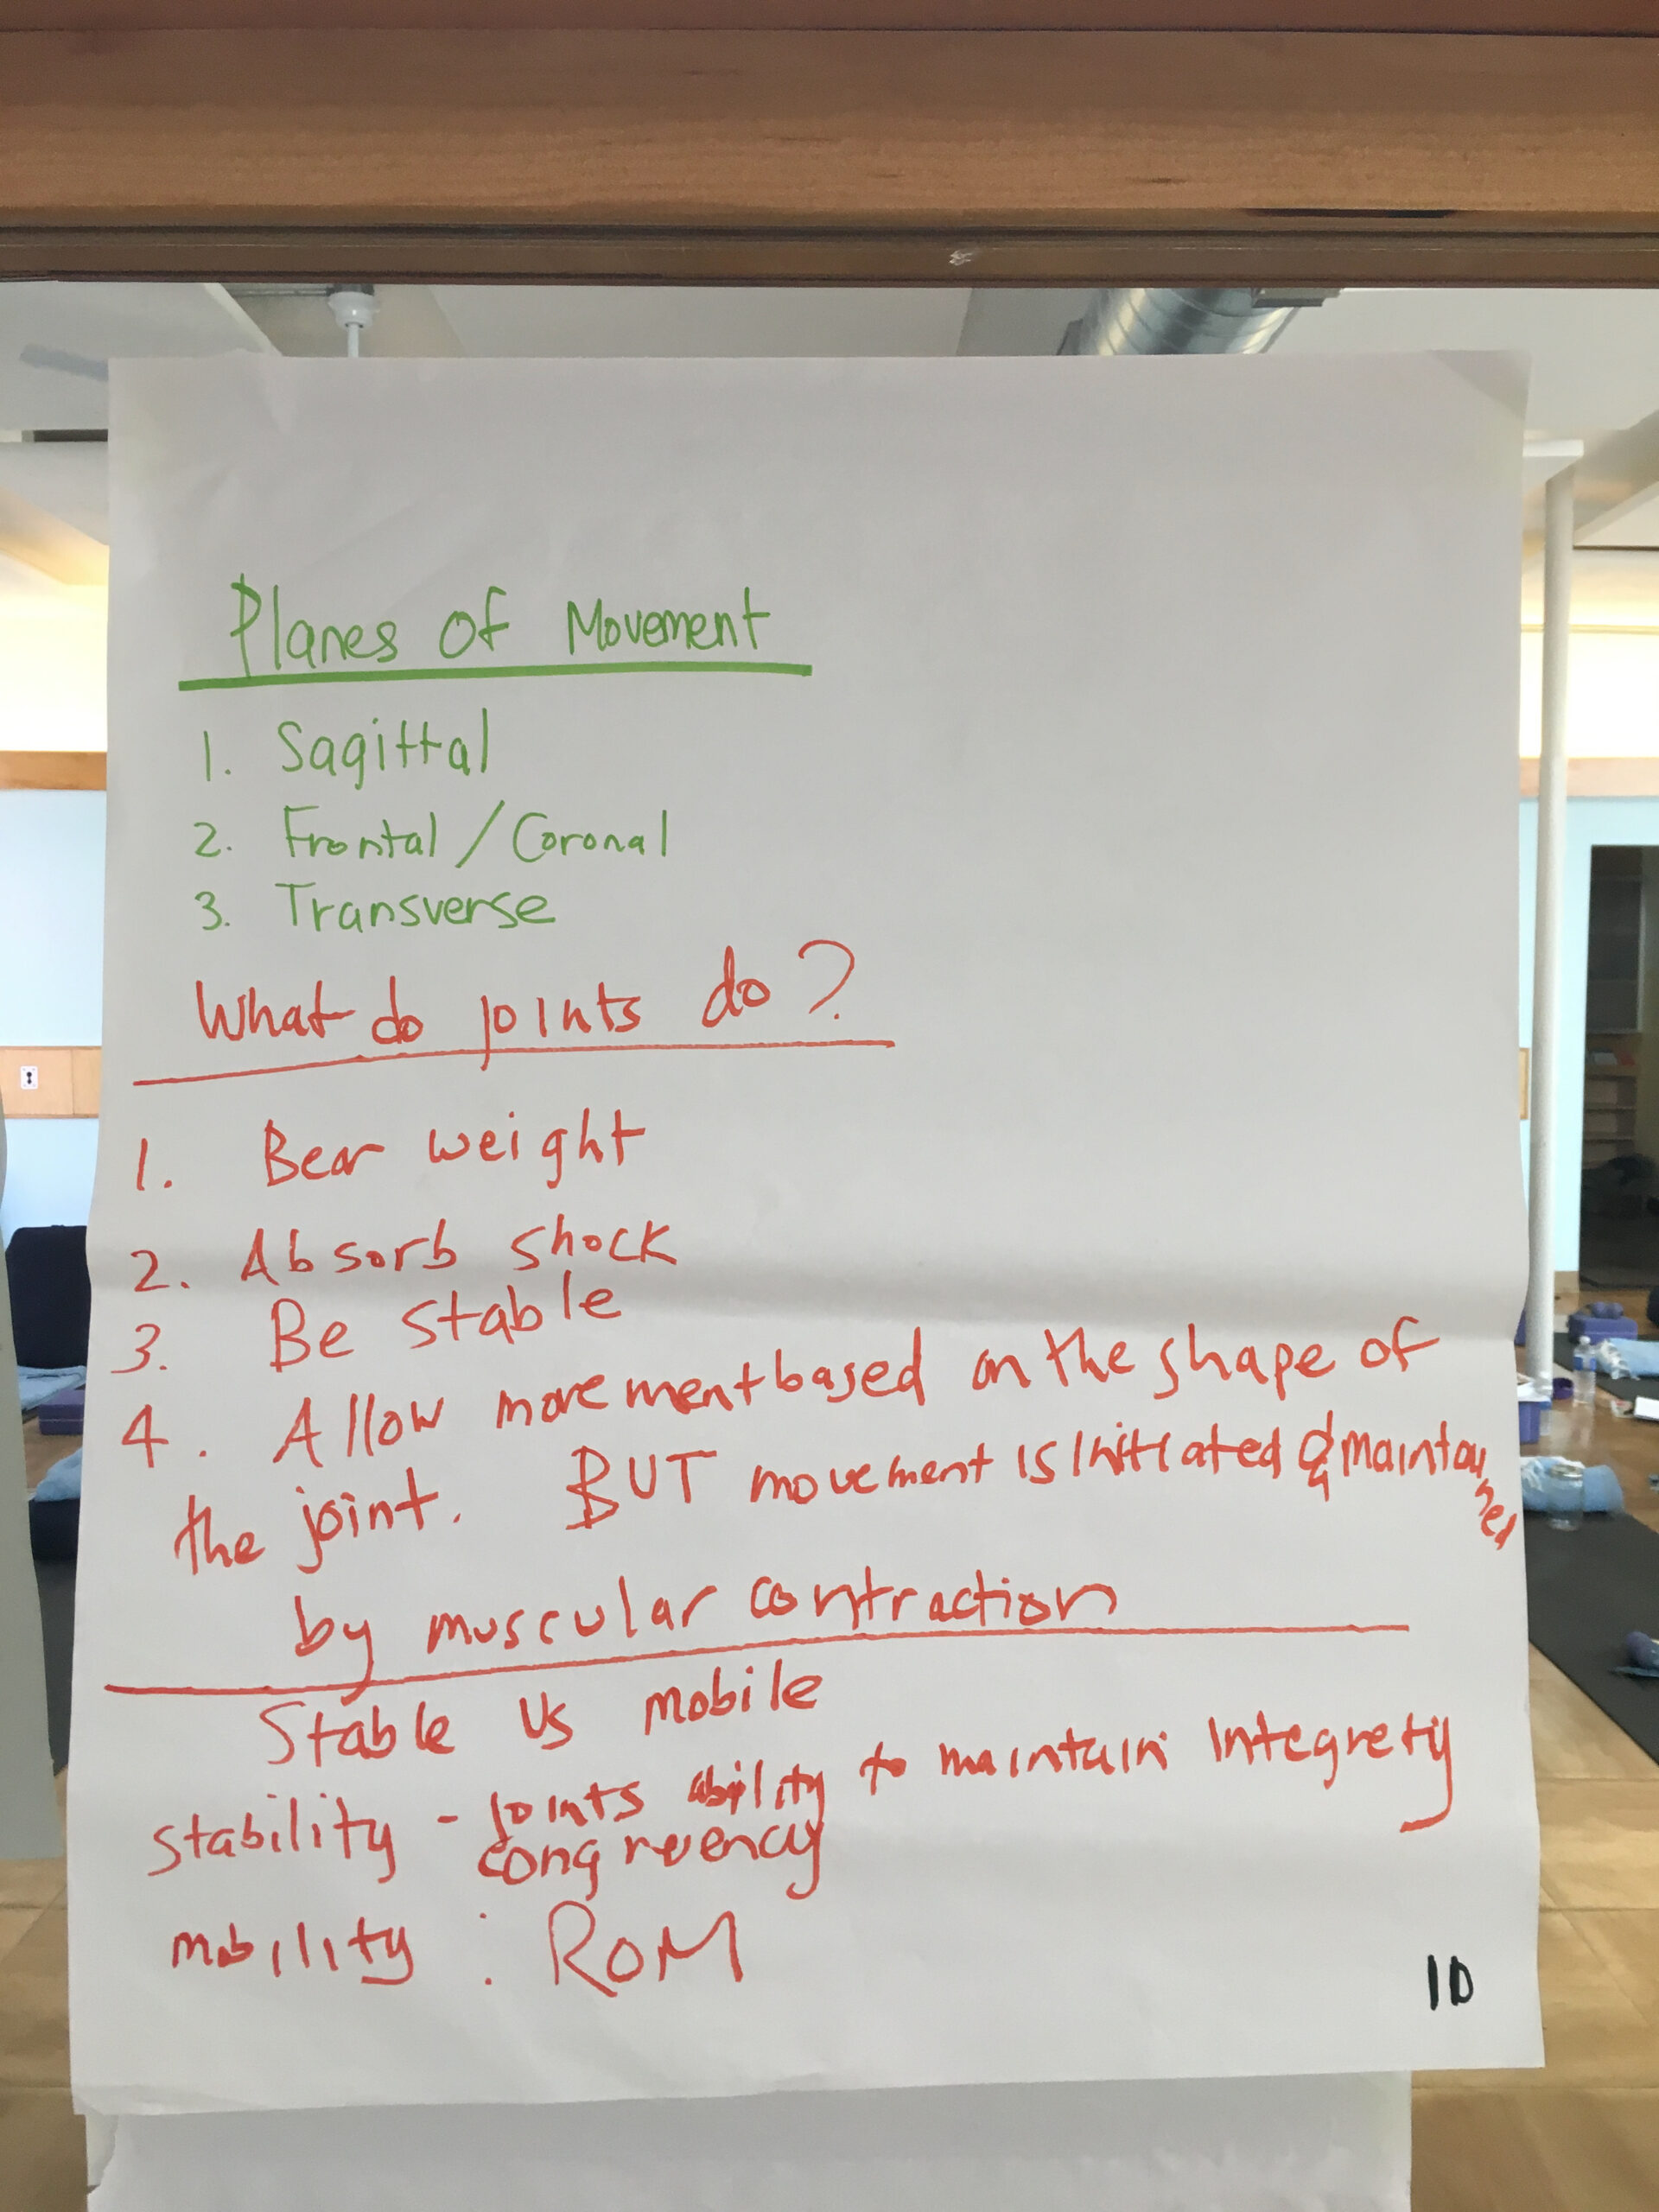 Planes of Movement
1. Sagittal
2. Frontal / Coronal
3. Transverse
What do joints do?
1. Bear weight
2. Absorb shock
3. Be stable
4. Allow movement based on the shape of
the joint. BUT movement is initiated & maintained
by muscular contraction
Stable vs mobile
stability - joints ability to maintain integrety
congruency
mobility : ROM
10